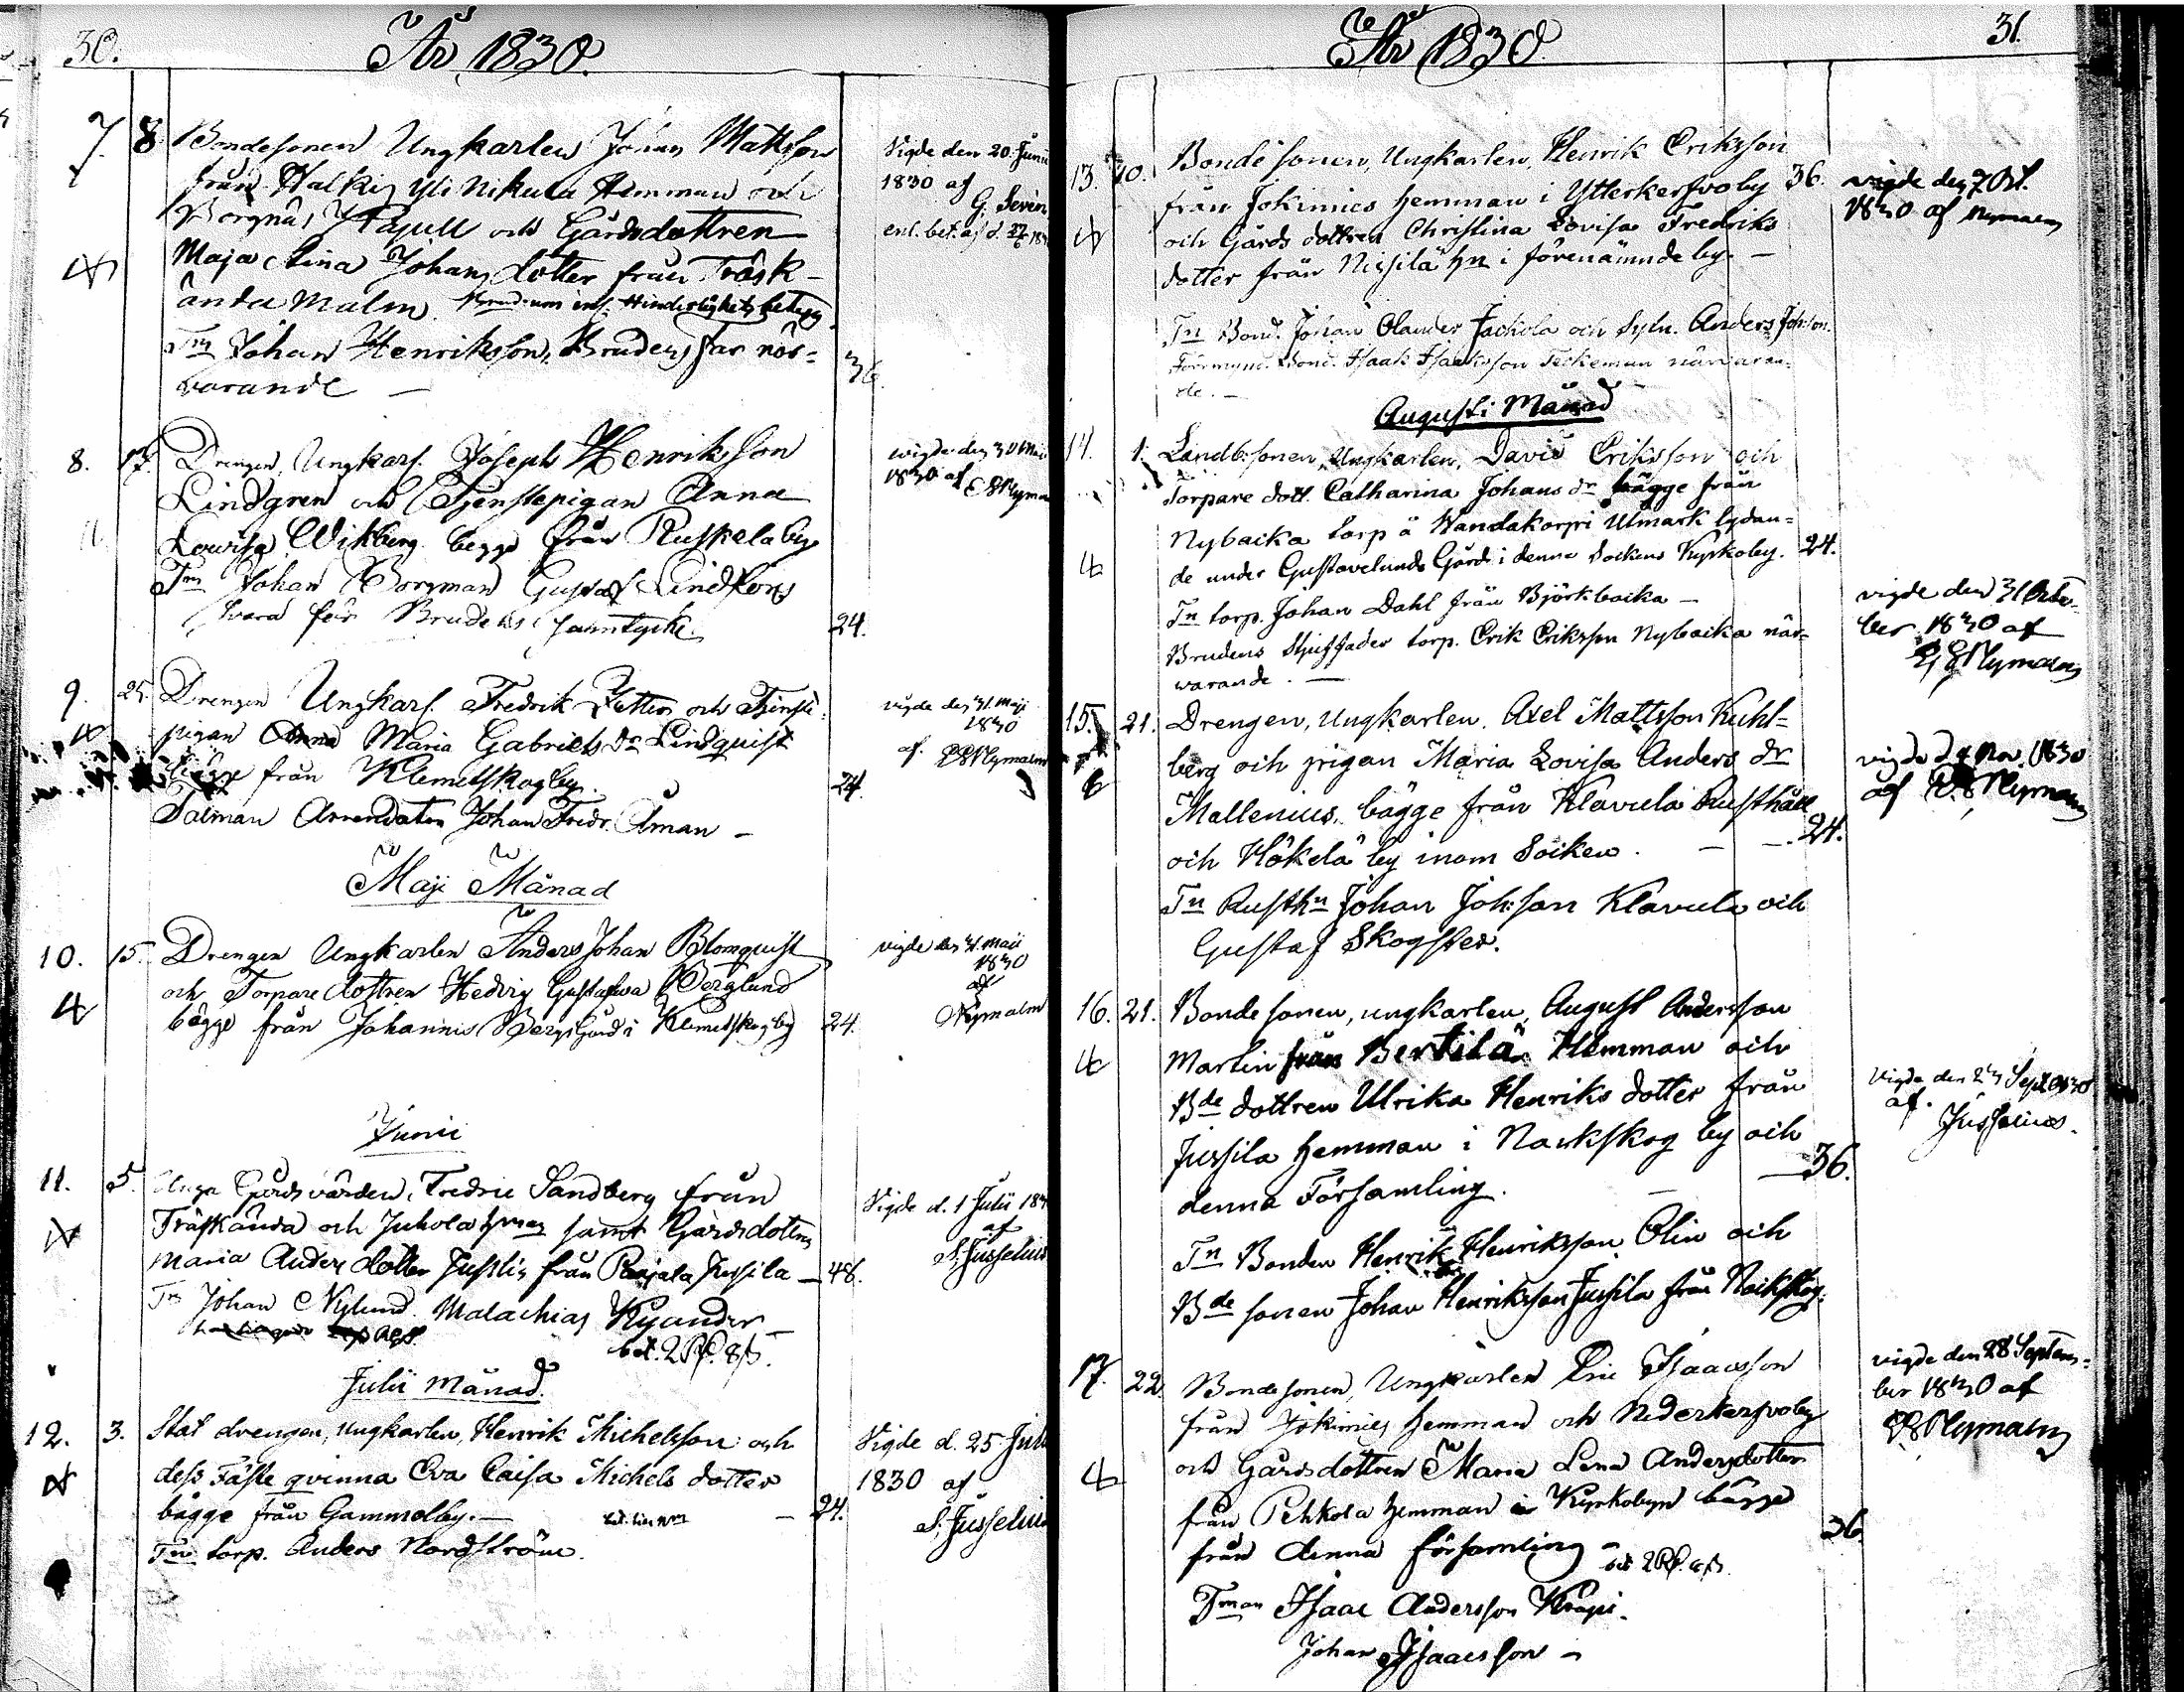 30.
År 1830.
7. 8 Bondesonen Ungkarlen Johan Mattson
från Halkis Yli Nikula Hemman och
Borgnäs Kapell och Gårdsdottren
Maja Stina Johans dotter från Träsk-
ända Malm. Hinderslöshets betyg
Tm Johan Henriksson, Brudens far när-
varande — 36.
Vigde den 20. Junii
1830 af
G. Sevin
enl. bet. af d.
8. 17. Drengen, Ungkarl. Joseph Henriksson
Lindgren och Tjenstepigan Anna
Lovisa Wikberg begge från Ruskela by
Tm Johan Borgman Gustaf Lindfors
svara för Brudens samtycke. 24.
vigde den 30 Maii
1830 af
9. 25. Drengen Ungkarl. Fredrik och Tjenste
pigan Maria Gabriels dr Lindquist
bägge från Klemetskog by. 24.
Talman Arrendatorn Johan Fredr. Åman —
vigde den 31. Maji
1830
af Nymalm
Maji Månad
10. 15. Drengen Ungkarlen Anders Johan Blomquist
och Torpare dottren Hedvig Gustafva Berglund
bägge från Johannis Bergs Gård i Klemetskog by 24.
vigde den 31. Maii
1830
af
Nymalm
Junii
11. 5. Unga Gårdsvärden, Fredric Sandberg från
Träskända och Juhola hman samt Gårdsdottren
Maria Anders dotter Juslin från Paijala Jussila — 48.
Tm Johan Nylund Malachias Kyander —
bet. 2 Rd. 8 s.
Vigde d. 1 Julii 1830
af
S. Jusselius
Julii Månad.
12. 3. Stat drengen, ungkarlen, Henrik Michelsson och
dess Fäste qvinna Eva Caisa Michels dotter
bägge från Gammelby. — — 24.
Tn torp. Anders Nordström.
Vigde d. 25 Julii
1830 af
S. Jusselius
År 1830.
31.
13. 20. Bondesonen, Ungkarlen, Henrik Eriksson 36.
från Jokimies hemman i Ytterkersvo by
och Gårds dottren Christina Lovisa Fredriks
dotter från Nissilä hn i förenämnde by. —
Tn Bond. Johan Olander Jackola och Sytn. Anders Joh:son.
Förmynd. Bond. Isaak Isaaksson Teckeman närvaran-
de. —
vigde den 7 Oct.
1830 af Nymalm
Augusti Månad
14. 1. Landb:sonen, Ungkarlen, David Eriksson och
Torpare dott. Catharina Johans dr bägge från
Nybacka torp å Wandakorpi Utmark lydan-
de under Gustavelunds Gård i denna Sockens Kyrkoby. 24.
Tn torp. Johan Dahl från Björkbacka —
Brudens Stjuffader torp. Erik Eriksson Nybacka när-
warande. —
vigde den 31 Octo-
ber 1830 af
Nymalm
15. 21. Drengen, Ungkarlen, Axel Mattsson Kuhl-
berg och pigan Maria Lovisa Anders dr
Mallenius, bägge från Klavula Rusthåll
och Hökelä by inom Socken. — —. 24.
Tn Rusthn Johan Joh:son Klavula och
Gustaf Skogster.
vigde d 4 Nov. 1830
af Nymalm
16. 21. Bondesonen, ungkarlen, August Andersson
Martin från Bertilä Hemman och
Bde dottren Ulrika Henriks dotter från
Jussila hemman i Nackskog by och
denna Församling. — —36.
Tn Bonden Henrik Henriksson Olin och
Bde sonen Johan Henriksson Jussila från Nackskog.
Vigde den 23 Sept 1830
af
Jusselius.
17. 22. Bondesonen, Ungkarlen Eric Isaacsson
från Jokimies hemman och Nederkersvoby
och Gårdsdottren Maria Lena Andersdotter
från Pehkola hemman i Kyrkobyn bägge
från denna församling — 36
bet 2 Rd. 4 s.
Tman Isaac Andersson Krapi.
Johan Isaacsson —
vigde den 28 Septem-
ber 1830 af
Nymalm